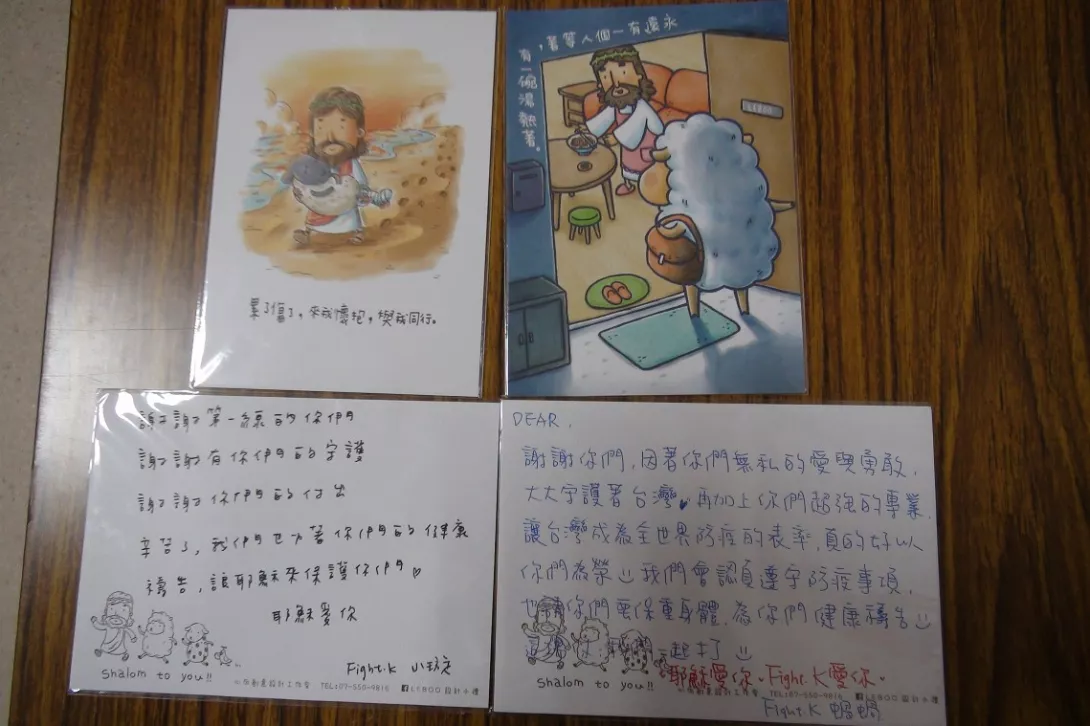 累了傷了，來我懷抱，與我同行。
永遠有一個人等著，
有一碗湯熱著。
謝謝第一線的你們
謝謝有你們的守護
謝謝你們的付出
辛苦了，我們也為著你們的健康
禱告，讓耶穌來保護你們♡
耶穌愛你
Fight.K 小玟
Shalom to you!!
創意設計工作室 TEL:07-550-9816 LEBOO設計小禮
DEAR,
謝謝你們，因著你們無私的愛與勇敢，
大大守護著台灣♥再加上你們超強的專業，
讓台灣成為全世界防疫的表率，真的好以
你們為榮 我們會認真遵守防疫事項，
也請你們要保重身體，為你們健康禱告
一起打
耶穌愛你。Fight.K愛你。
Shalom to you!!
創意設計工作室 TEL:07-550-9816 LEBOO設計小禮
Fight.K